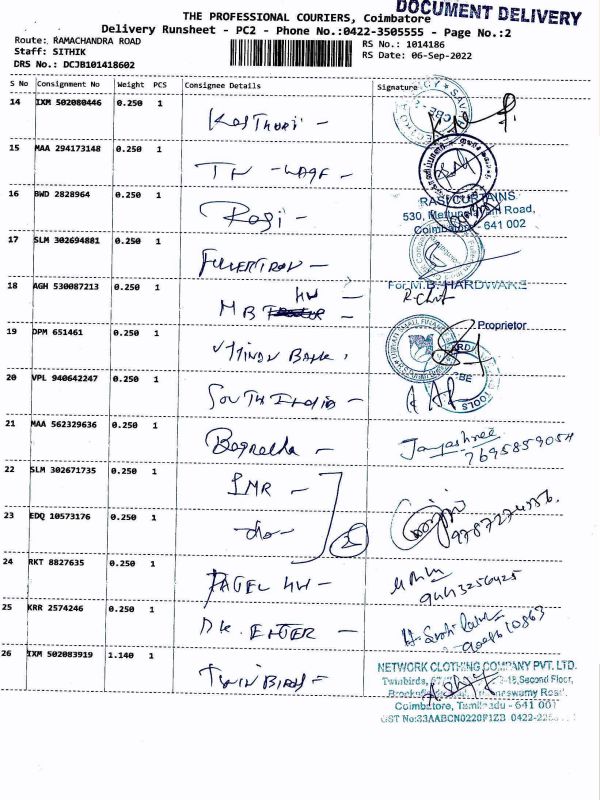 DOCUMENT DELIVERY
THE PROFESSIONAL COURIERS, Coimbatore
Delivery Runsheet - PC2 - Phone No.:0422-3505555 - Page No.:2
Route: RAMACHANDRA ROAD
RS No.: 1014186
Staff: SITHIK
RS Date: 06-Sep-2022
DRS No.: DCJB101418602
S No Consignment No Weight PCS Consignee Details Signature
14 IXM 502080446 0.250 1 Kasthuri -
15 MAA 294173148 0.250 1 TN - WAQF -
16 BWD 2828964 0.250 1 Rasi -
RASI CURTAINS
530, Mettupalayam Road,
Coimbatore - 641 002
17 SLM 302694881 0.250 1 FULLERTRON -
18 AGH 530087213 0.250 1 MB HW -
For M.B. HARDWARE
Proprietor
19 DPM 651461 0.250 1 Uttindu Bank,
20 VPL 940642247 0.250 1 SOUTH INDIA -
21 MAA 562329636 0.250 1
Jayashree
7695859054
22 SLM 302671735 0.250 1 IMR -
23 EDQ 10573176 0.250 1 -do- 2
9787274556.
24 RKT 8827635 0.250 1 PAGEL HW -
9443256425
25 KRR 2574246 0.250 1 D.K. ENTER -
26 IXM 502083919 1.140 1 TWIN BIRDS -
NETWORK CLOTHING COMPANY PVT. LTD.
Twinbirds, Second Floor,
Coimbatore, Tamilnadu - 641 001
GST No:33AABCN0220F1ZB 0422-